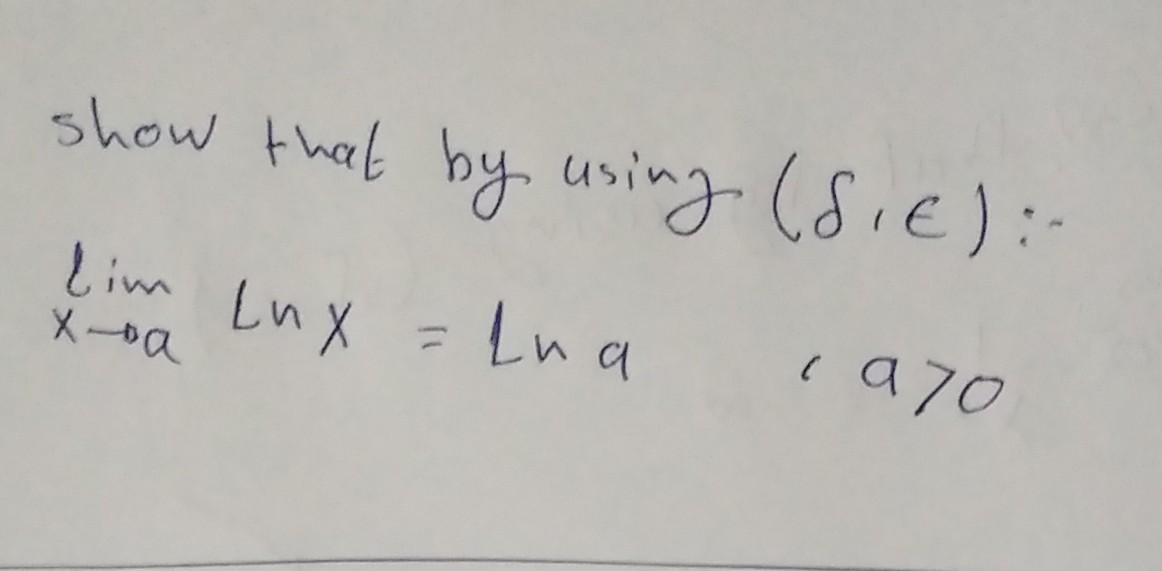 show that by using (δ, ϵ) :-
lim Ln x = Ln a , a > 0
x→a